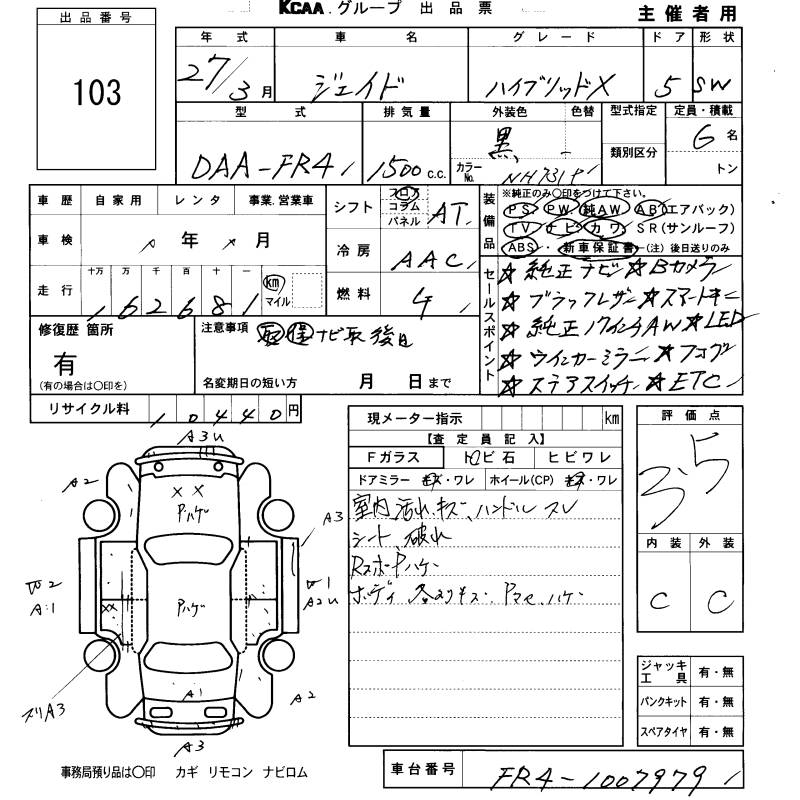 KCAA.グループ 出品票
主催者用
出品番号
103
年式 車名 グレード ドア 形状
27/3月 ジェイド ハイブリッドX 5 SW
型式 排気量 外装色 色替 型式指定 定員・積載
DAA-FR4 1500c.c. 黒 6名
カラーNo. NH731P 類別区分 トン
車歴 自家用 レンタ 事業.営業車
シフト フロア コラム パネル AT
装備品
※純正のみ〇印をつけて下さい。
PS PW 純AW AB(エアバック)
TV ナビ カワ SR(サンルーフ)
ABS・新車保証書(注)後日送りのみ
車検 年 月
冷房 AAC
走行 十万 万 千 百 十 一 km マイル
162681
燃料
セールスポイント
☆純正ナビ☆Bカメラ
☆ブラックレザー☆スマートキー
☆純正17インチAW☆LED
☆ウインカーミラー☆フォグ
☆ステアスイッチ☆ETC
修復歴 箇所
有
(有の場合は〇印を)
注意事項 取 保 ナビ取後日
名変期日の短い方 月 日まで
リサイクル料 10440円
現メーター指示 km
【査定員記入】
Fガラス トビ石 ヒビワレ
ドアミラー キズ・ワレ ホイール(CP) キズ・ワレ
室内 汚れ、キズ、ハンドル スレ
シート、破れ
RスポーPハゲ
ボディ 各よりキズ
評価点
3.5
内装 外装
C C
A3U
A2
Pハゲ
A3
A1
Pハゲ
A2U
A1
A2
A3
ジャッキ工具 有・無
パンクキット 有・無
スペアタイヤ 有・無
事務局預り品は〇印 カギ リモコン ナビロム
車台番号 FR4-1007979